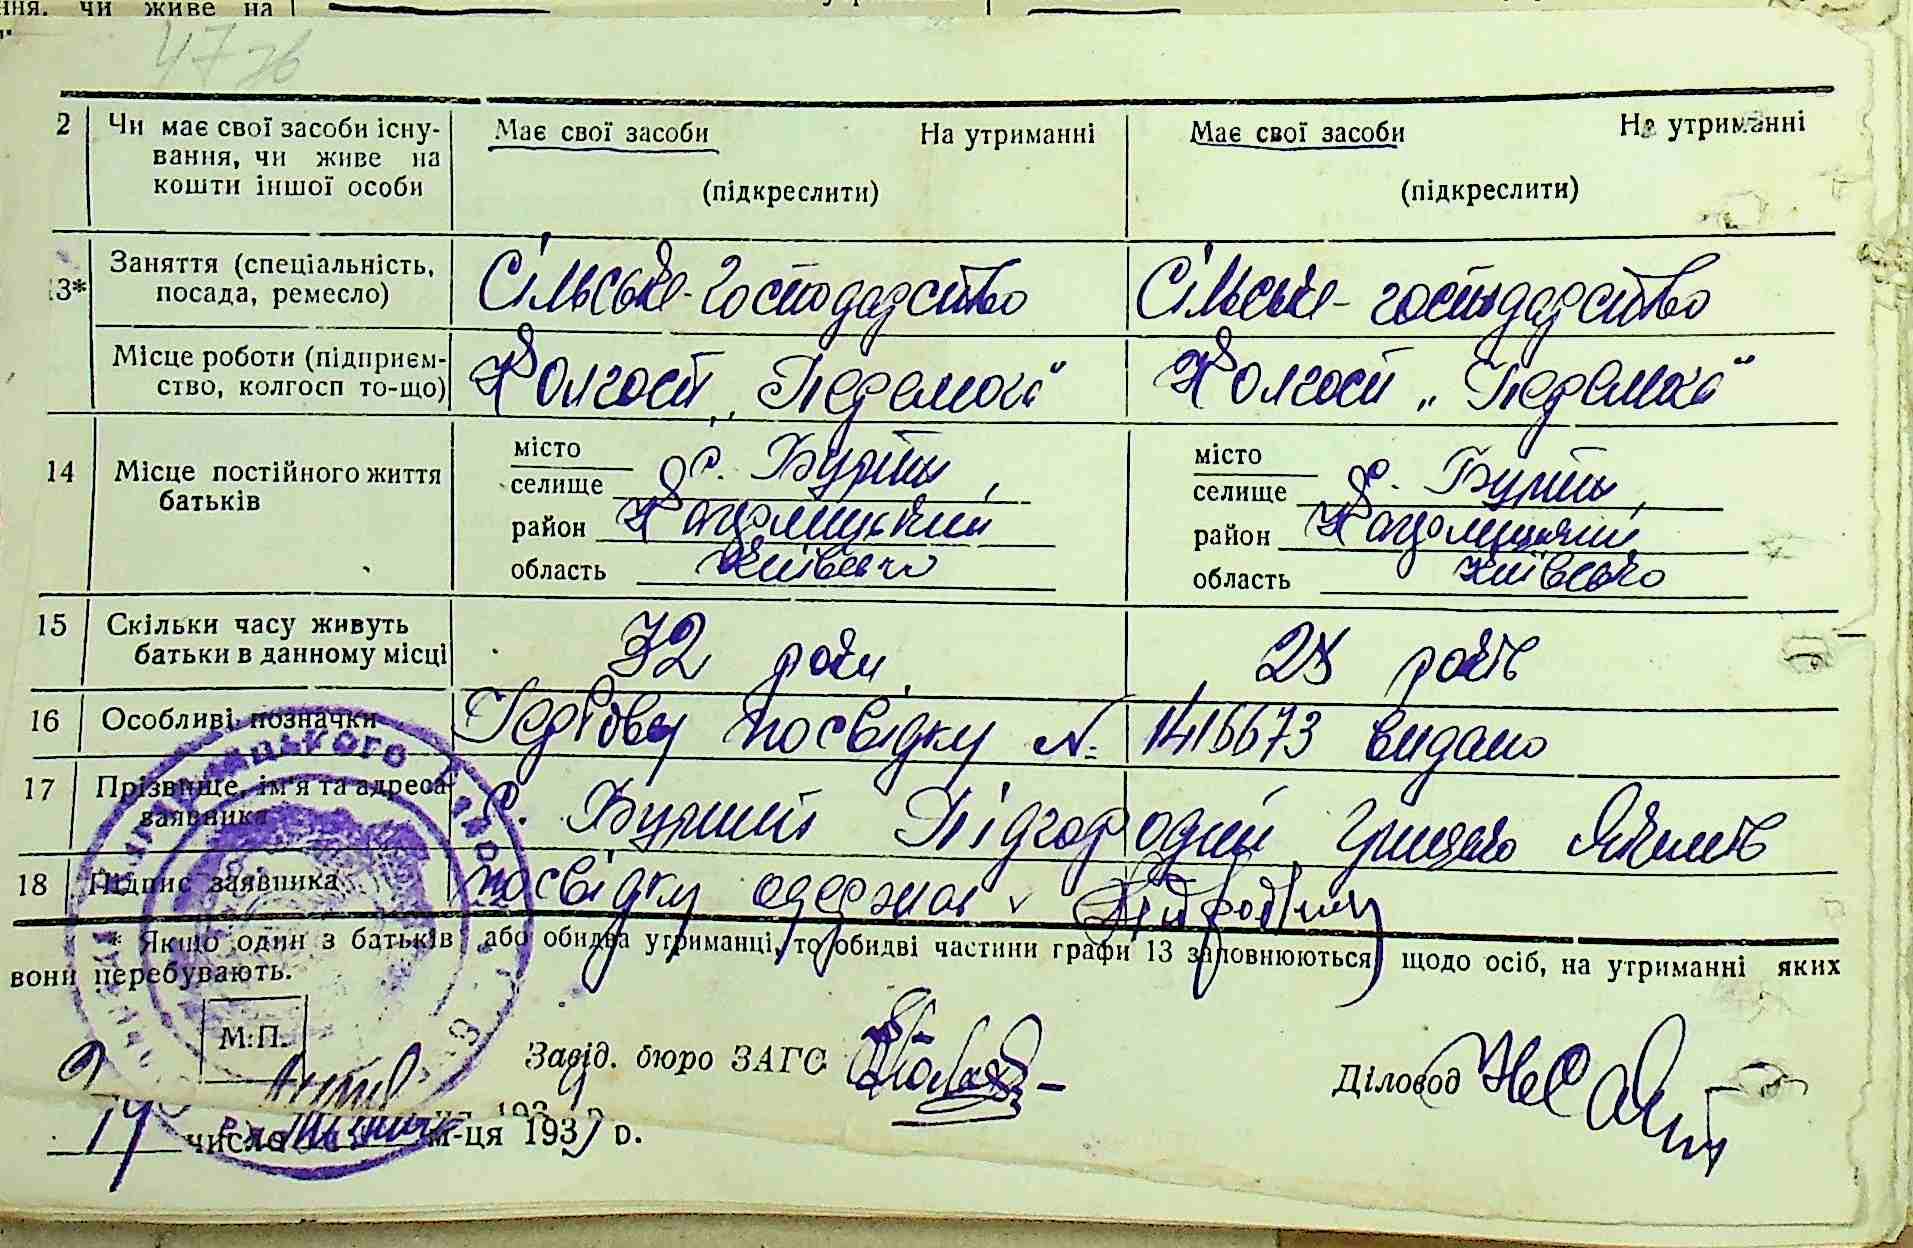 ння, чи живе на
47 зв
2 Чи має свої засоби існу- Має свої засоби На утриманні Має свої засоби На утриманні
вання, чи живе на
кошти іншої особи (підкреслити) (підкреслити)
13* Заняття (спеціальність, Сільське-господарство Сільське-господарство
посада, ремесло)
Місце роботи (підприєм- Колгосп „Перемога" Колгосп „Перемога"
ство, колгосп то-що)
14 Місце постійного життя місто с. Бурти, місто с. Бурти,
батьків селище селище
район Кагарлицький район Кагарлицький
область Київсько область Київсько
15 Скільки часу живуть 32 роки 28 років
батьки в данному місці
16 Особливі позначки Гербову посвідку № 1415673 видано
17 Прізвище, ім'я та адреса с. Бурти Підгородній Грицько Якимів
заявника
18 Підпис заявника посвідку одержав
* Якщо один з батьків або обидва утриманці, то обидві частини графи 13 заповнюються щодо осіб, на утриманні яких
вони перебувають.
М.П.
Завід. бюро ЗАГС Діловод
число м-ця 1939 р.